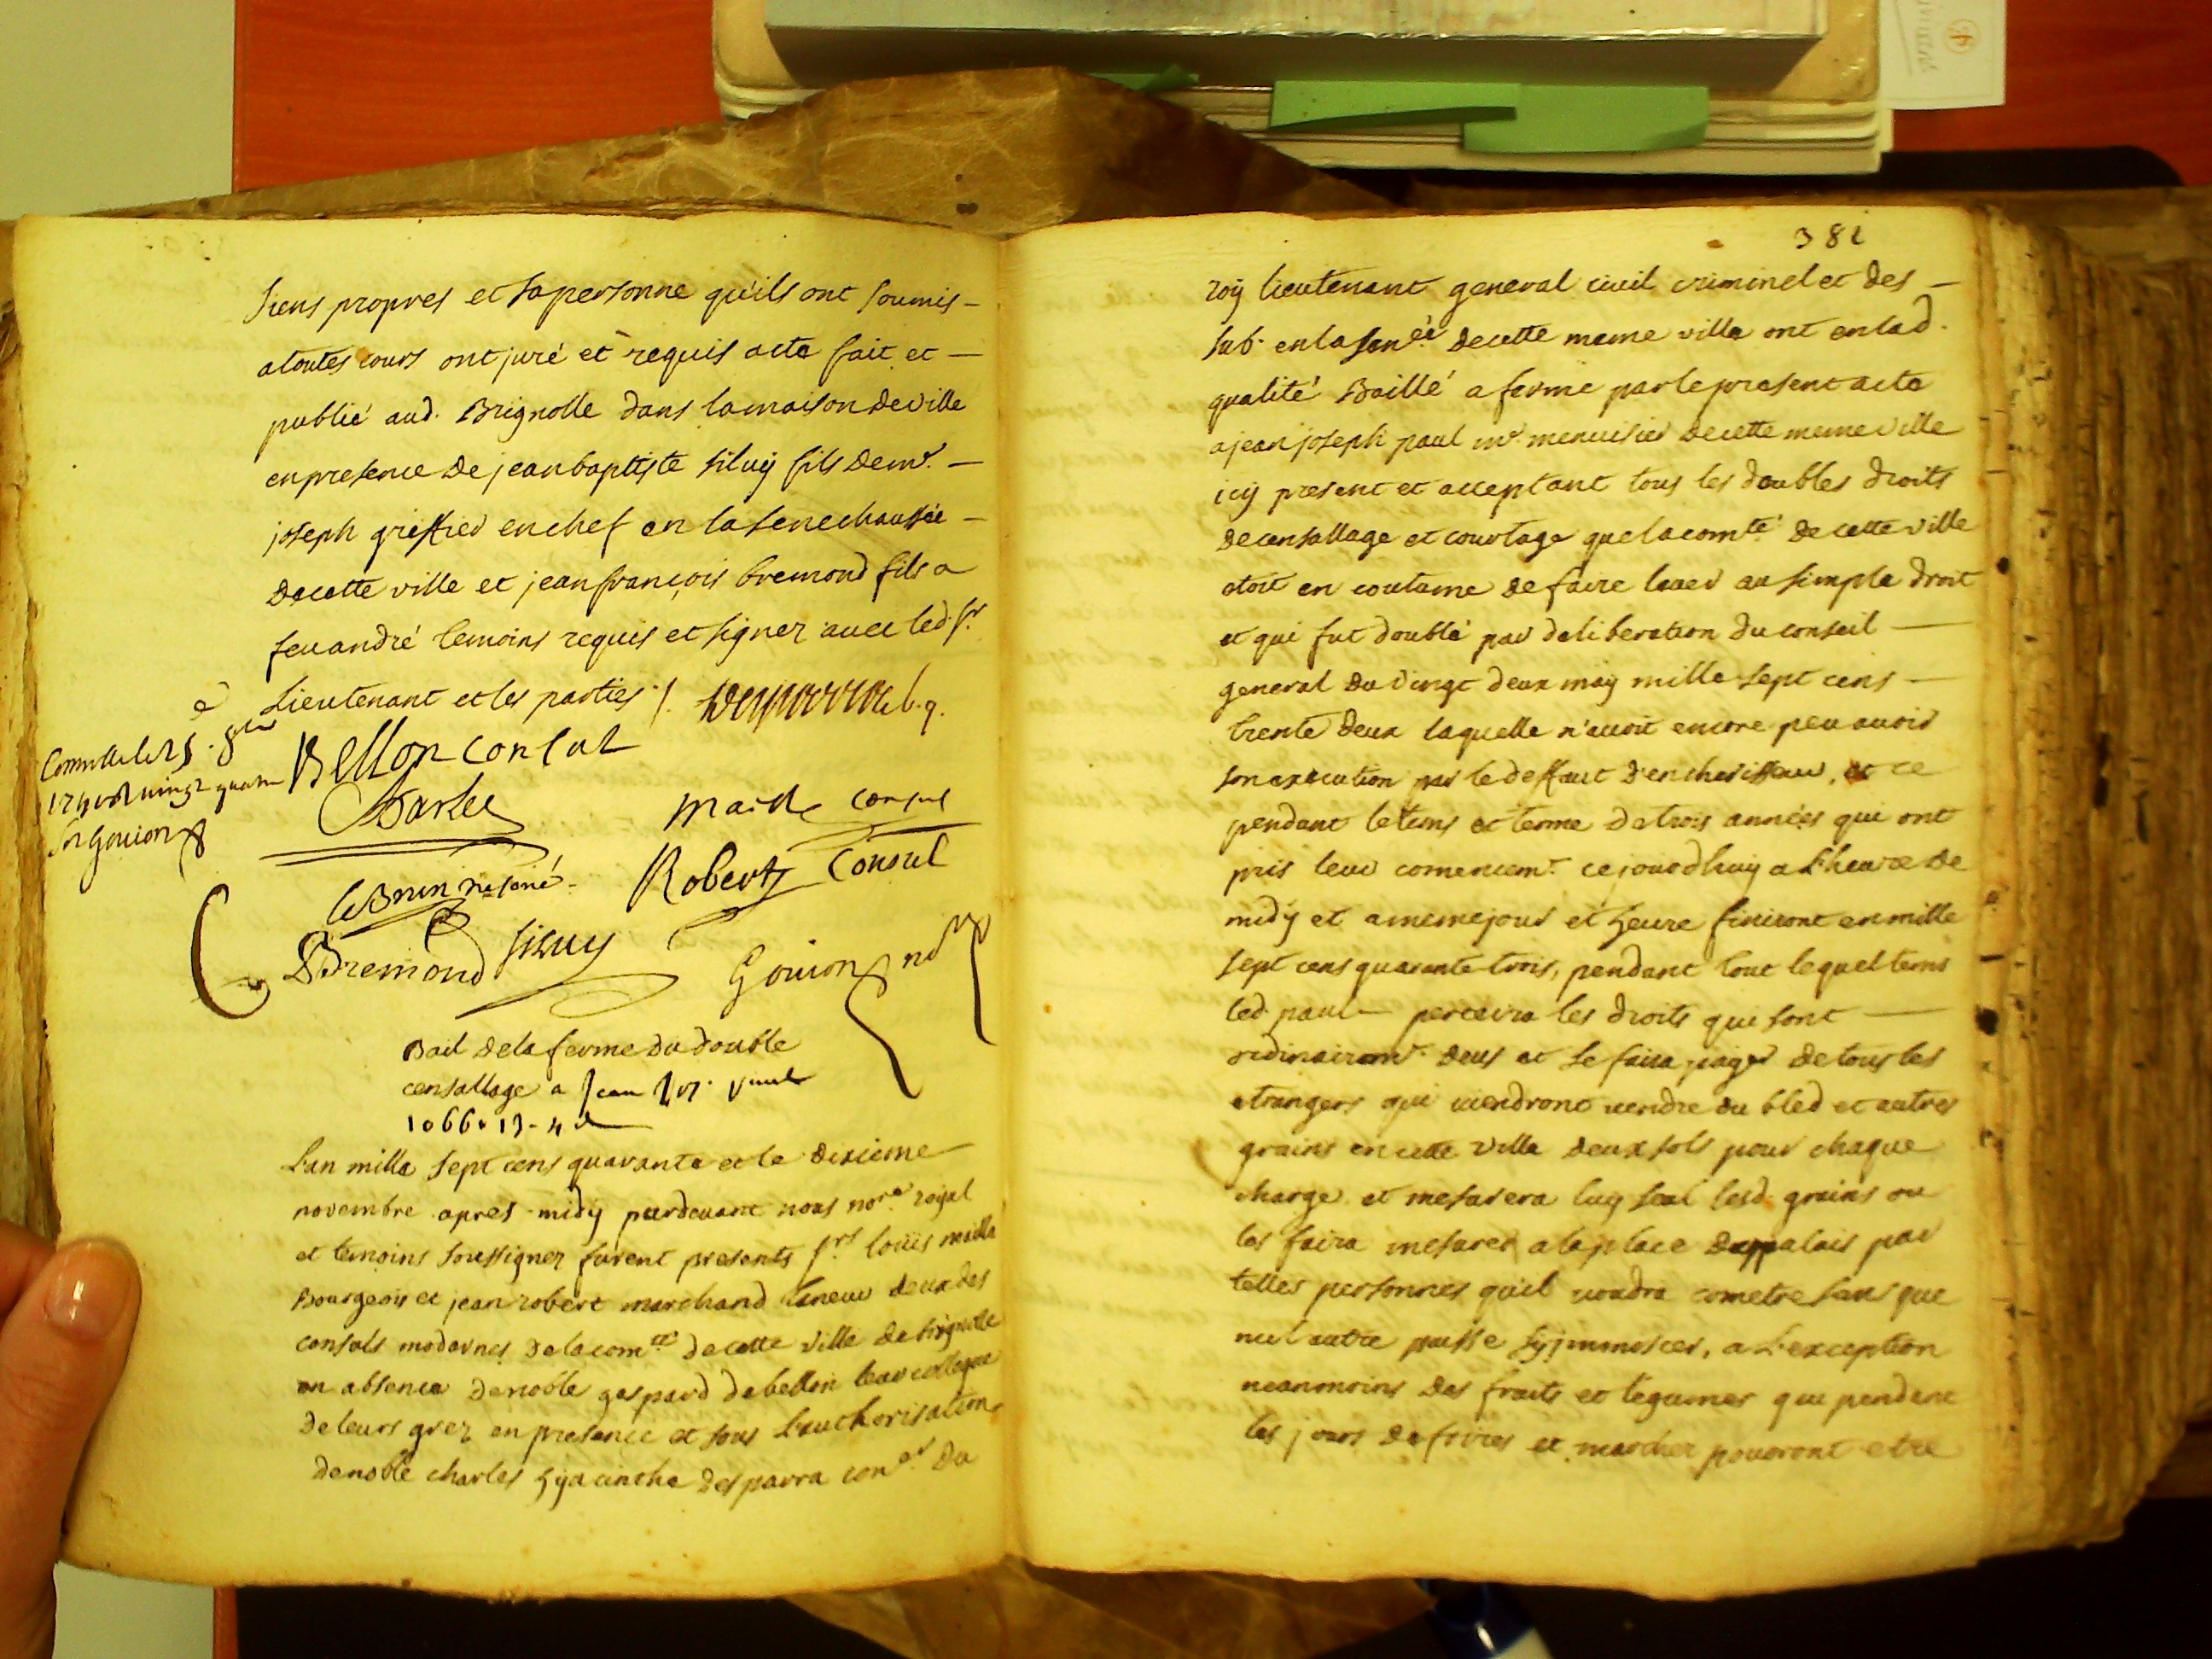 siens propres et sa personne qu'ils ont soumis -
a toutes cours ont juré et requis acte fait et -
publié aud. Brignolle dans la maison de ville
en presence de jean baptiste siluy fils de mr. -
joseph greffier en chef en la senechaussée -
de cette ville et jean françois bremond fils a
feu andré temoins requis et signez avec led. sr.
Lieutenant et les parties ./.
Bellon consul
Barles
maille consul
le Brun
Robert Consul
Bremond
siluy
Gouion nre
Controllé
Gouion
Bail de la ferme du double
censallage a Jean Jos. Paul
1066. 13 - 4 d
L'an mille sept cens quarante et le dixieme
novembre apres midy pardevant nous nore. royal
et temoins soussignez furent presents srs. louis maille
Bourgeois et jean robert marchand taneur deux des
consuls modernes de la comté. de cette ville de brignolle
en absence de noble gaspard de bellon leur collegue
de leurs grez en presence et sous l'authorisation
de noble charles hyacinthe desparra coner du
381
roy lieutenant general civil criminel et des -
sub. en la senée de cette meme ville ont en lad.
qualité Baillé a ferme par le present acte
a jean joseph paul me. menuisier de cette meme ville
icy present et acceptant tous les doubles droits
de censallage et courtage que la comté. de cette ville
etoit en coutume de faire lever au simple droit
et qui fut doublé par deliberation du conseil -
general du vingt deux may mille sept cens -
trente deux laquelle n'avoit encore peu avoir
son execution par le deffaut d'encherisseur, et ce
pendant le tems et terme de trois années qui ont
pris leur comencemt. ce jourdhuy a L'heure de
midy et a meme jour et heure finiront en mille
sept cens quarante trois, pendant tout lequel tems
led. paul percevra les droits qui sont -
ordinairemt. deus et se faira payer de tous les
etrangers qui viendront vendre du bled et autres
grains en cette ville deux sols pour chaque
charge et mesurera luy seul lesd. grains ou
les faira mesurer a la place du palais par
telles personnes qu'il voudra cometre sans que
nul autre puisse s'y immiscer, a L'exception
neanmoins des fruits et legumes qui pendant
les jours de foires et marchez pouront etre